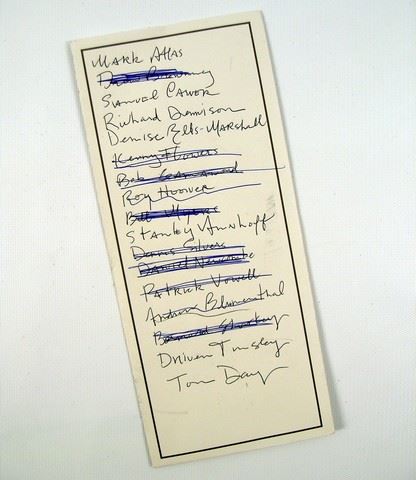 Mark Atlas
Samuel Cawer
Richard Dennison
Denise Ells-Marshall
Kenny Flowers
Bob
Roy Hoover
Bill
Stanley
Dennis Silvers
Daniel
Patrick Vowell
Andrew Blumenthal
Bernard
Driven Tinsley
Tom Day